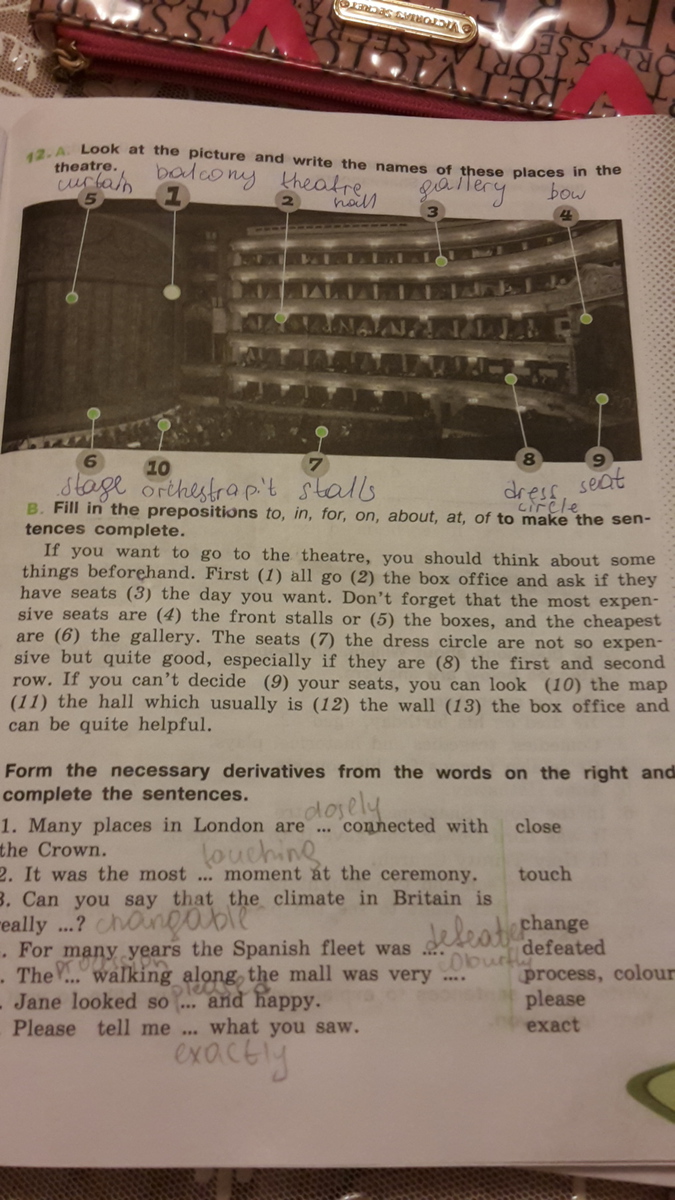 VICTORIA'S SECRET
12-A. Look at the picture and write the names of these places in the
theatre.
curtain balcony theatre hall gallery bow
5 1 2 3 4
6 10 7 8 9
stage orchestra pit stalls dress circle seat
B. Fill in the prepositions to, in, for, on, about, at, of to make the sen-
tences complete.
If you want to go to the theatre, you should think about some
things beforehand. First (1) all go (2) the box office and ask if they
have seats (3) the day you want. Don't forget that the most expen-
sive seats are (4) the front stalls or (5) the boxes, and the cheapest
are (6) the gallery. The seats (7) the dress circle are not so expen-
sive but quite good, especially if they are (8) the first and second
row. If you can't decide (9) your seats, you can look (10) the map
(11) the hall which usually is (12) the wall (13) the box office and
can be quite helpful.
Form the necessary derivatives from the words on the right and
complete the sentences.
closely
1. Many places in London are ... connected with close
the Crown.
touching
2. It was the most ... moment at the ceremony. touch
3. Can you say that the climate in Britain is
really ...? changable change
. For many years the Spanish fleet was .... defeated
. The ... walking along the mall was very .... process, colour
pleased
. Jane looked so ... and happy. please
Please tell me ... what you saw. exact
exactly